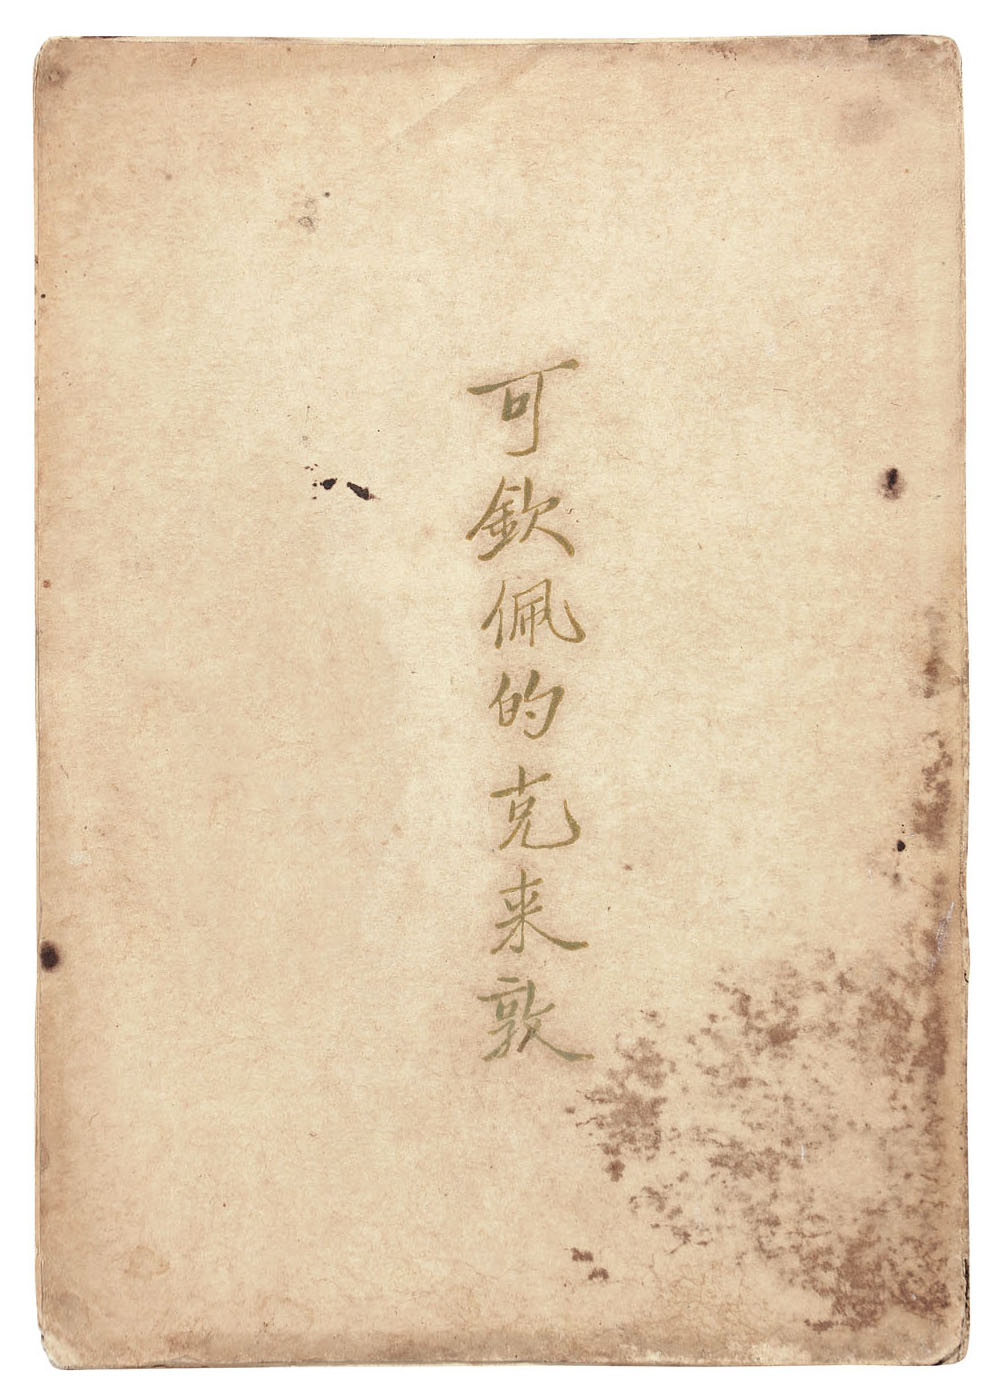 可欽佩的克来敦